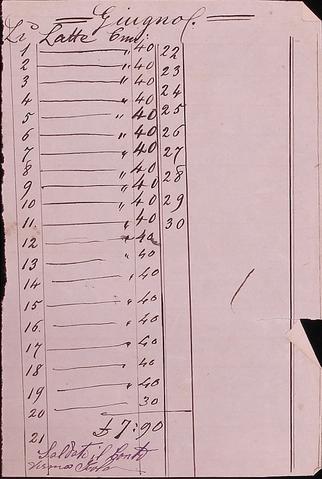 Giugno
Latte
1 " 40 22
2 " 40 23
3 " 40 24
4 " 40 25
5 " 40 26
6 " 40 27
7 " 40 28
8 " 40 29
9 " 40 30
10 " 40
11 " 40
12 " 40
13 " 40
14 " 40
15 " 40
16 " 40
17 " 40
18 40
19 " 40
20 30
21 £ 7:90
Saldato il Conto